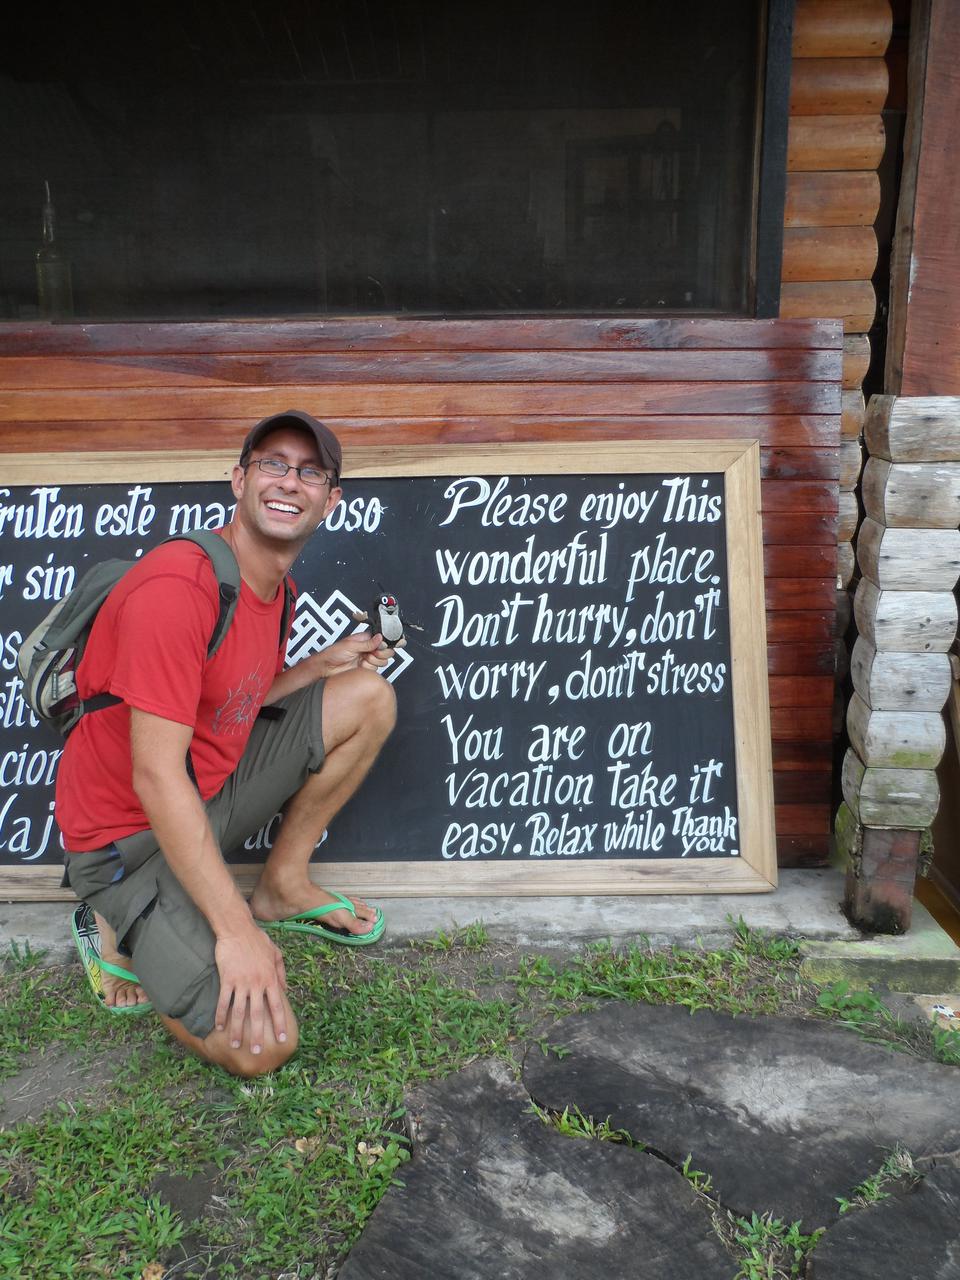 fruTen este ma oso
r sin
os
cion
Please enjoy This
wonderful place.
Don't hurry, don't
worry, don't stress
You are on
vacation Take it
easy. Relax while Thank
you.